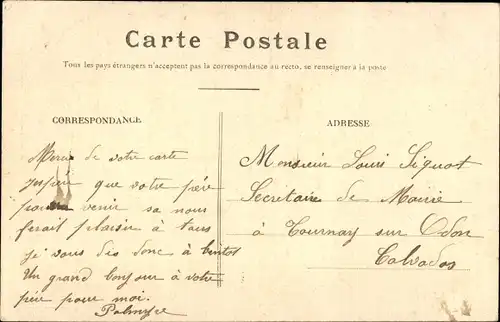 Carte Postale
Tous les pays étrangers n'acceptent pas la correspondance au recto, se renseigner à la poste
CORRESPONDANCE
Merci de votre carte
jespér que votre père
pourra venir sa nous
ferait plaisir à tous
je vous dis donc à bintot
Un grand bonjour à votre
père pour moi.
Palmyre
ADRESSE
Monsieur Louis Siquot
Secretaire de Mairie
à Tournay sur Odon
Calvados